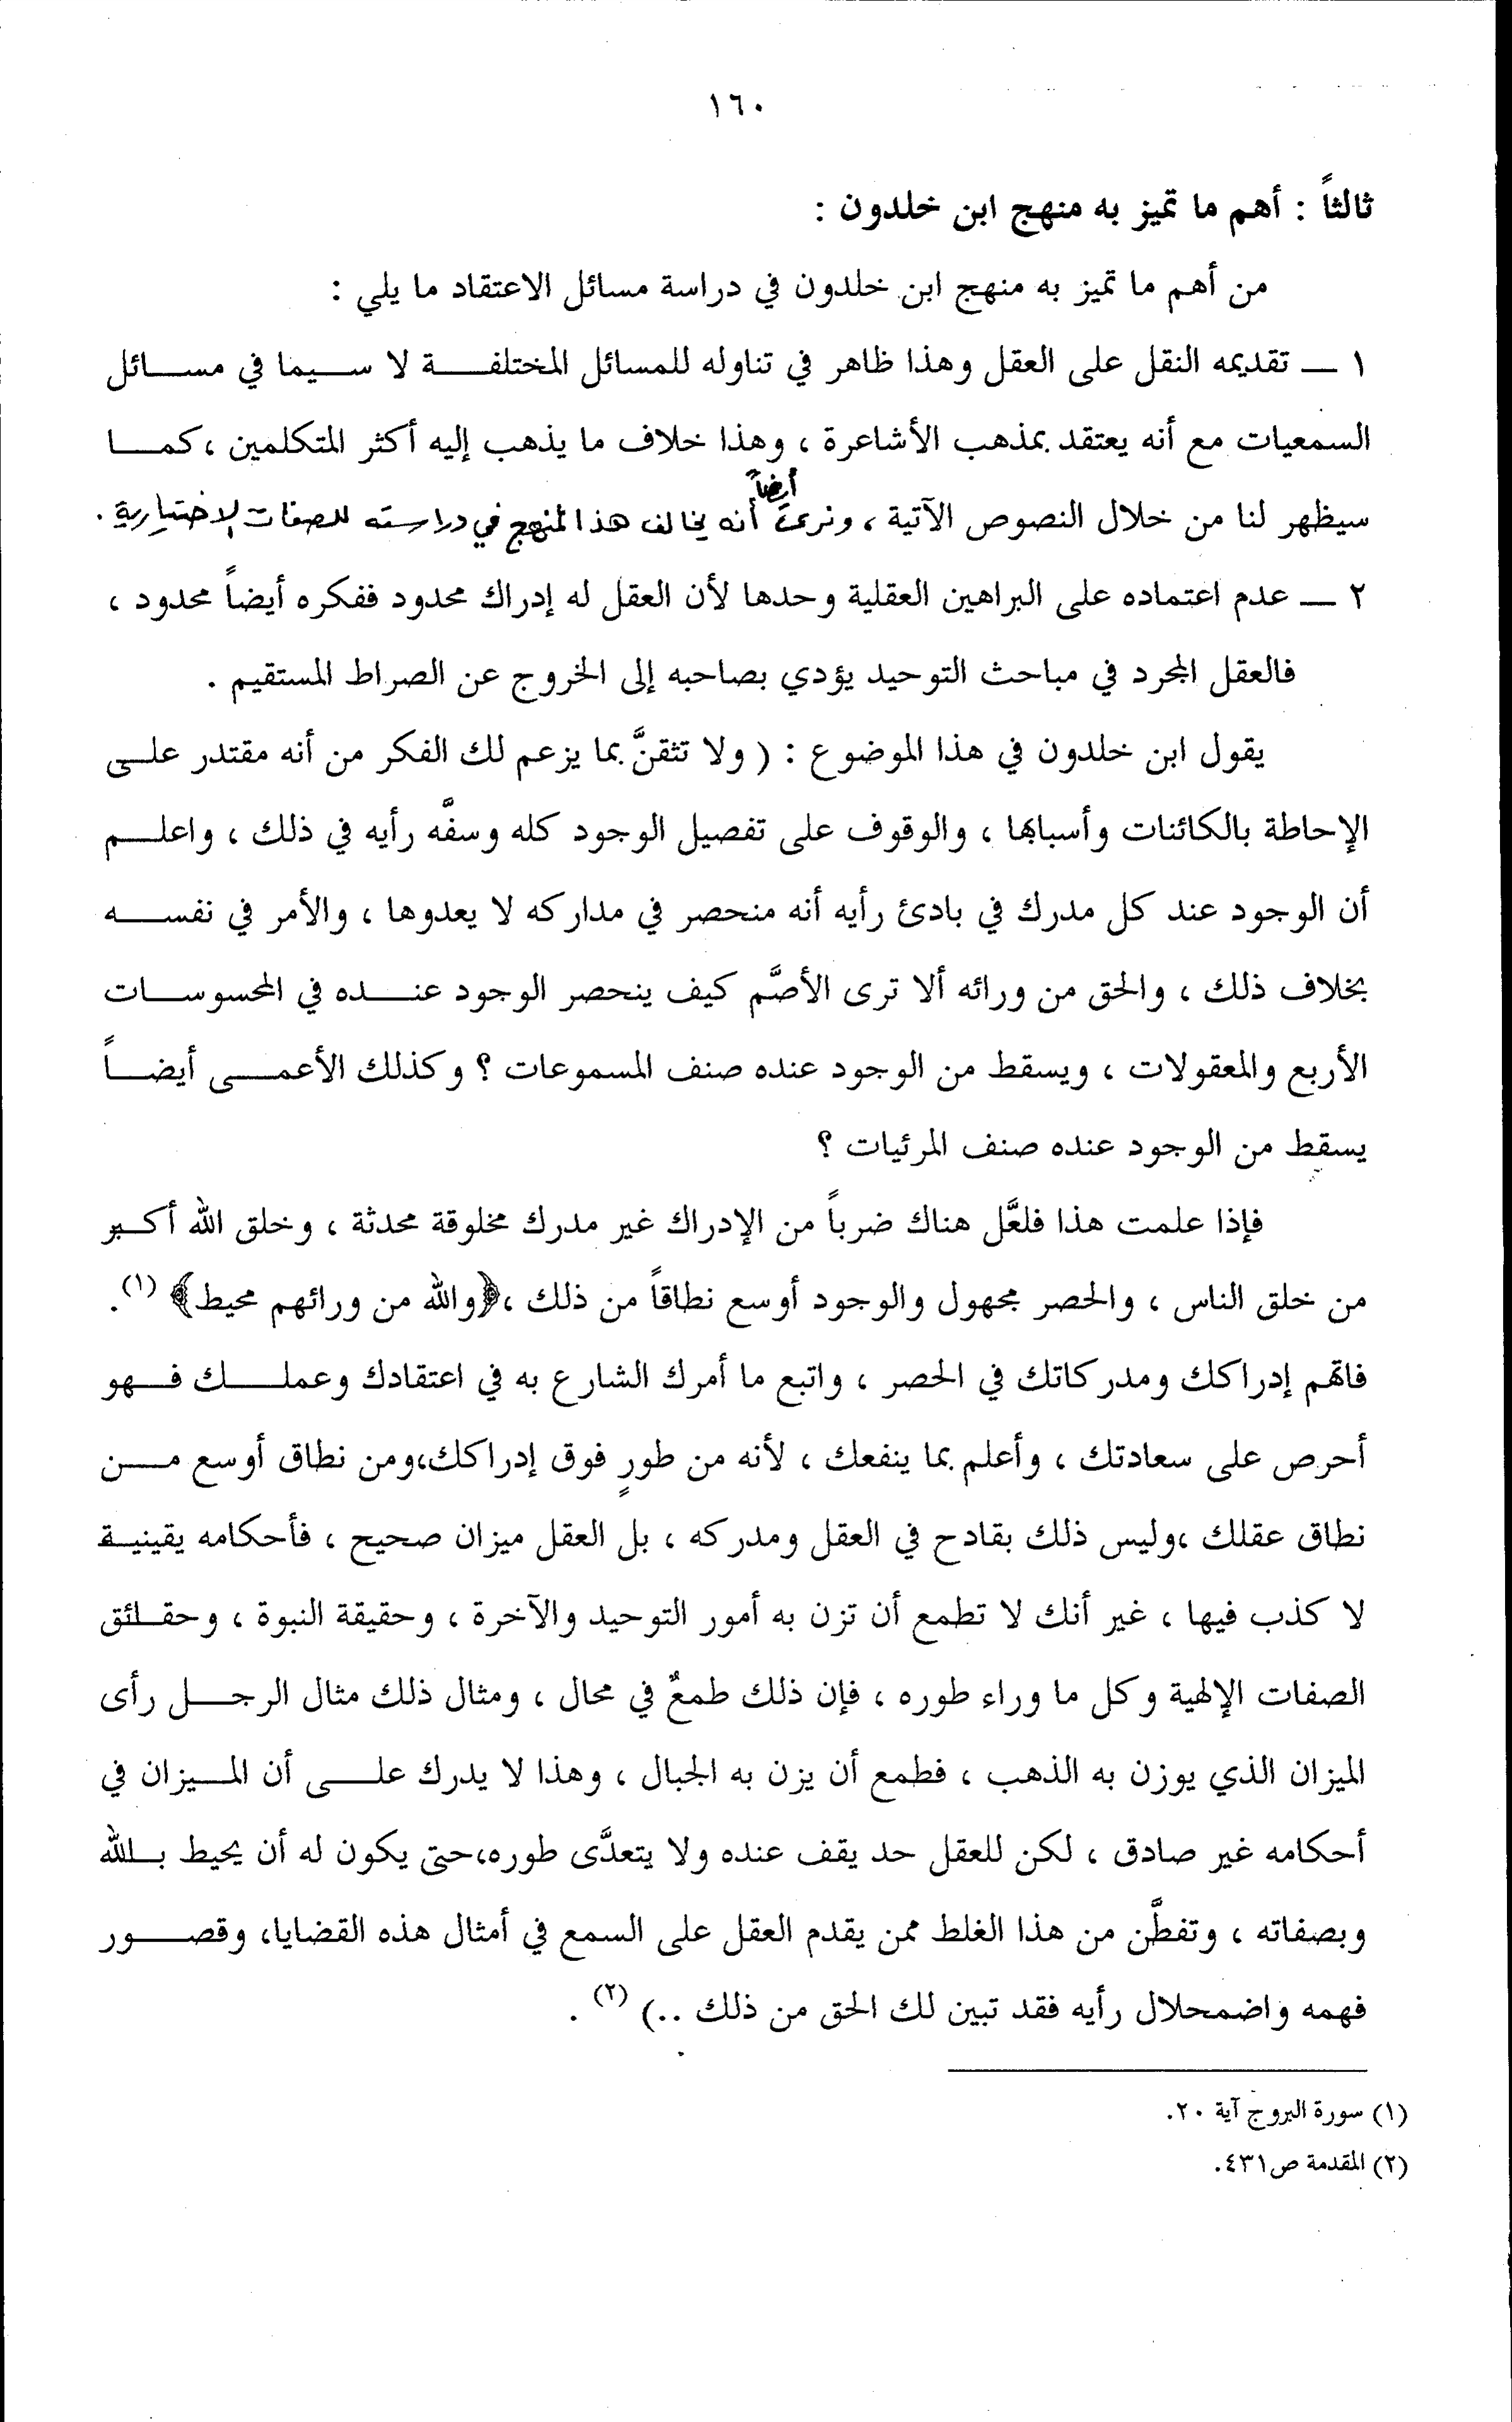 ١٦٠
ثالثاً : أهم ما تميز به منهج ابن خلدون :
من أهم ما تميز به منهج ابن خلدون في دراسة مسائل الاعتقاد ما يلي :
١ ـ تقديمه النقل على العقل وهذا ظاهر في تناوله للمسائل المختلفة لا سيما في مسائل
السمعيات مع أنه يعتقد بمذهب الأشاعرة ، وهذا خلاف ما يذهب إليه أكثر المتكلمين ، كما
سيظهر لنا من خلال النصوص الآتية ، ونرى أيضاً أنه يخالف هذا المنهج في دراسته للصفات الاختيارية .
٢ ـ عدم اعتماده على البراهين العقلية وحدها لأن العقل له إدراك محدود ففكره أيضاً محدود ،
فالعقل المجرد في مباحث التوحيد يؤدي بصاحبه إلى الخروج عن الصراط المستقيم .
يقول ابن خلدون في هذا الموضوع : ( ولا تثقنَّ بما يزعم لك الفكر من أنه مقتدر على
الإحاطة بالكائنات وأسبابها ، والوقوف على تفصيل الوجود كله وسفَّه رأيه في ذلك ، واعلم
أن الوجود عند كل مدرك في بادئ رأيه أنه منحصر في مداركه لا يعدوها ، والأمر في نفسه
بخلاف ذلك ، والحق من ورائه ألا ترى الأصَّم كيف ينحصر الوجود عنده في المحسوسات
الأربع والمعقولات ، ويسقط من الوجود عنده صنف المسموعات ؟ وكذلك الأعمى أيضاً
يسقط من الوجود عنده صنف المرئيات ؟
فإذا علمت هذا فلعَّل هناك ضرباً من الإدراك غير مدرك مخلوقة محدثة ، وخلق الله أكبر
من خلق الناس ، والحصر مجهول والوجود أوسع نطاقاً من ذلك ،﴿والله من ورائهم محيط﴾ (١).
فاتهم إدراكك ومدركاتك في الحصر ، واتبع ما أمرك الشارع به في اعتقادك وعملك فهو
أحرص على سعادتك ، وأعلم بما ينفعك ، لأنه من طورٍ فوق إدراكك،ومن نطاق أوسع من
نطاق عقلك ،وليس ذلك بقادح في العقل ومدركه ، بل العقل ميزان صحيح ، فأحكامه يقينية
لا كذب فيها ، غير أنك لا تطمع أن تزن به أمور التوحيد والآخرة ، وحقيقة النبوة ، وحقائق
الصفات الإلهية وكل ما وراء طوره ، فإن ذلك طمعٌ في محال ، ومثال ذلك مثال الرجل رأى
الميزان الذي يوزن به الذهب ، فطمع أن يزن به الجبال ، وهذا لا يدرك على أن الميزان في
أحكامه غير صادق ، لكن للعقل حد يقف عنده ولا يتعدَّى طوره،حتى يكون له أن يحيط بالله
وبصفاته ، وتفطَّن من هذا الغلط ممن يقدم العقل على السمع في أمثال هذه القضايا، وقصور
فهمه واضمحلال رأيه فقد تبين لك الحق من ذلك ..) (٢) .
(١) سورة البروج آية ٢٠.
(٢) المقدمة ص٤٣١.